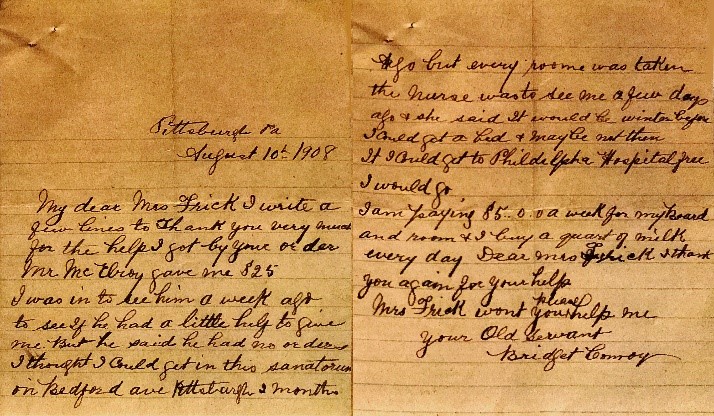 Pittsburgh Pa
August 10th 1908
My dear Mrs Frick I write a
few lines to Thank you very much
for the help I got by your order
Mr McElroy gave me $25
I was in to see him a week ago
to see If he had a little help to give
me. But he said he had no orders
I thought I Could get in this sanatorium
on Bedford ave Pittsburgh 2 months
Ago but every roome was taken
the Nurse was to see me a few days
ago & she said It would be winter before
I Could get a bed & maybe not then
If I Could get to Phildelpha Hospital free
I would go
I am paying $5.00 a week for my Board
and room & I buy a quart of milk
every day Dear Mrs Frick I thank
you again for your help
Mrs Frick wont you please help me
your Old Servant
Bridget Conroy